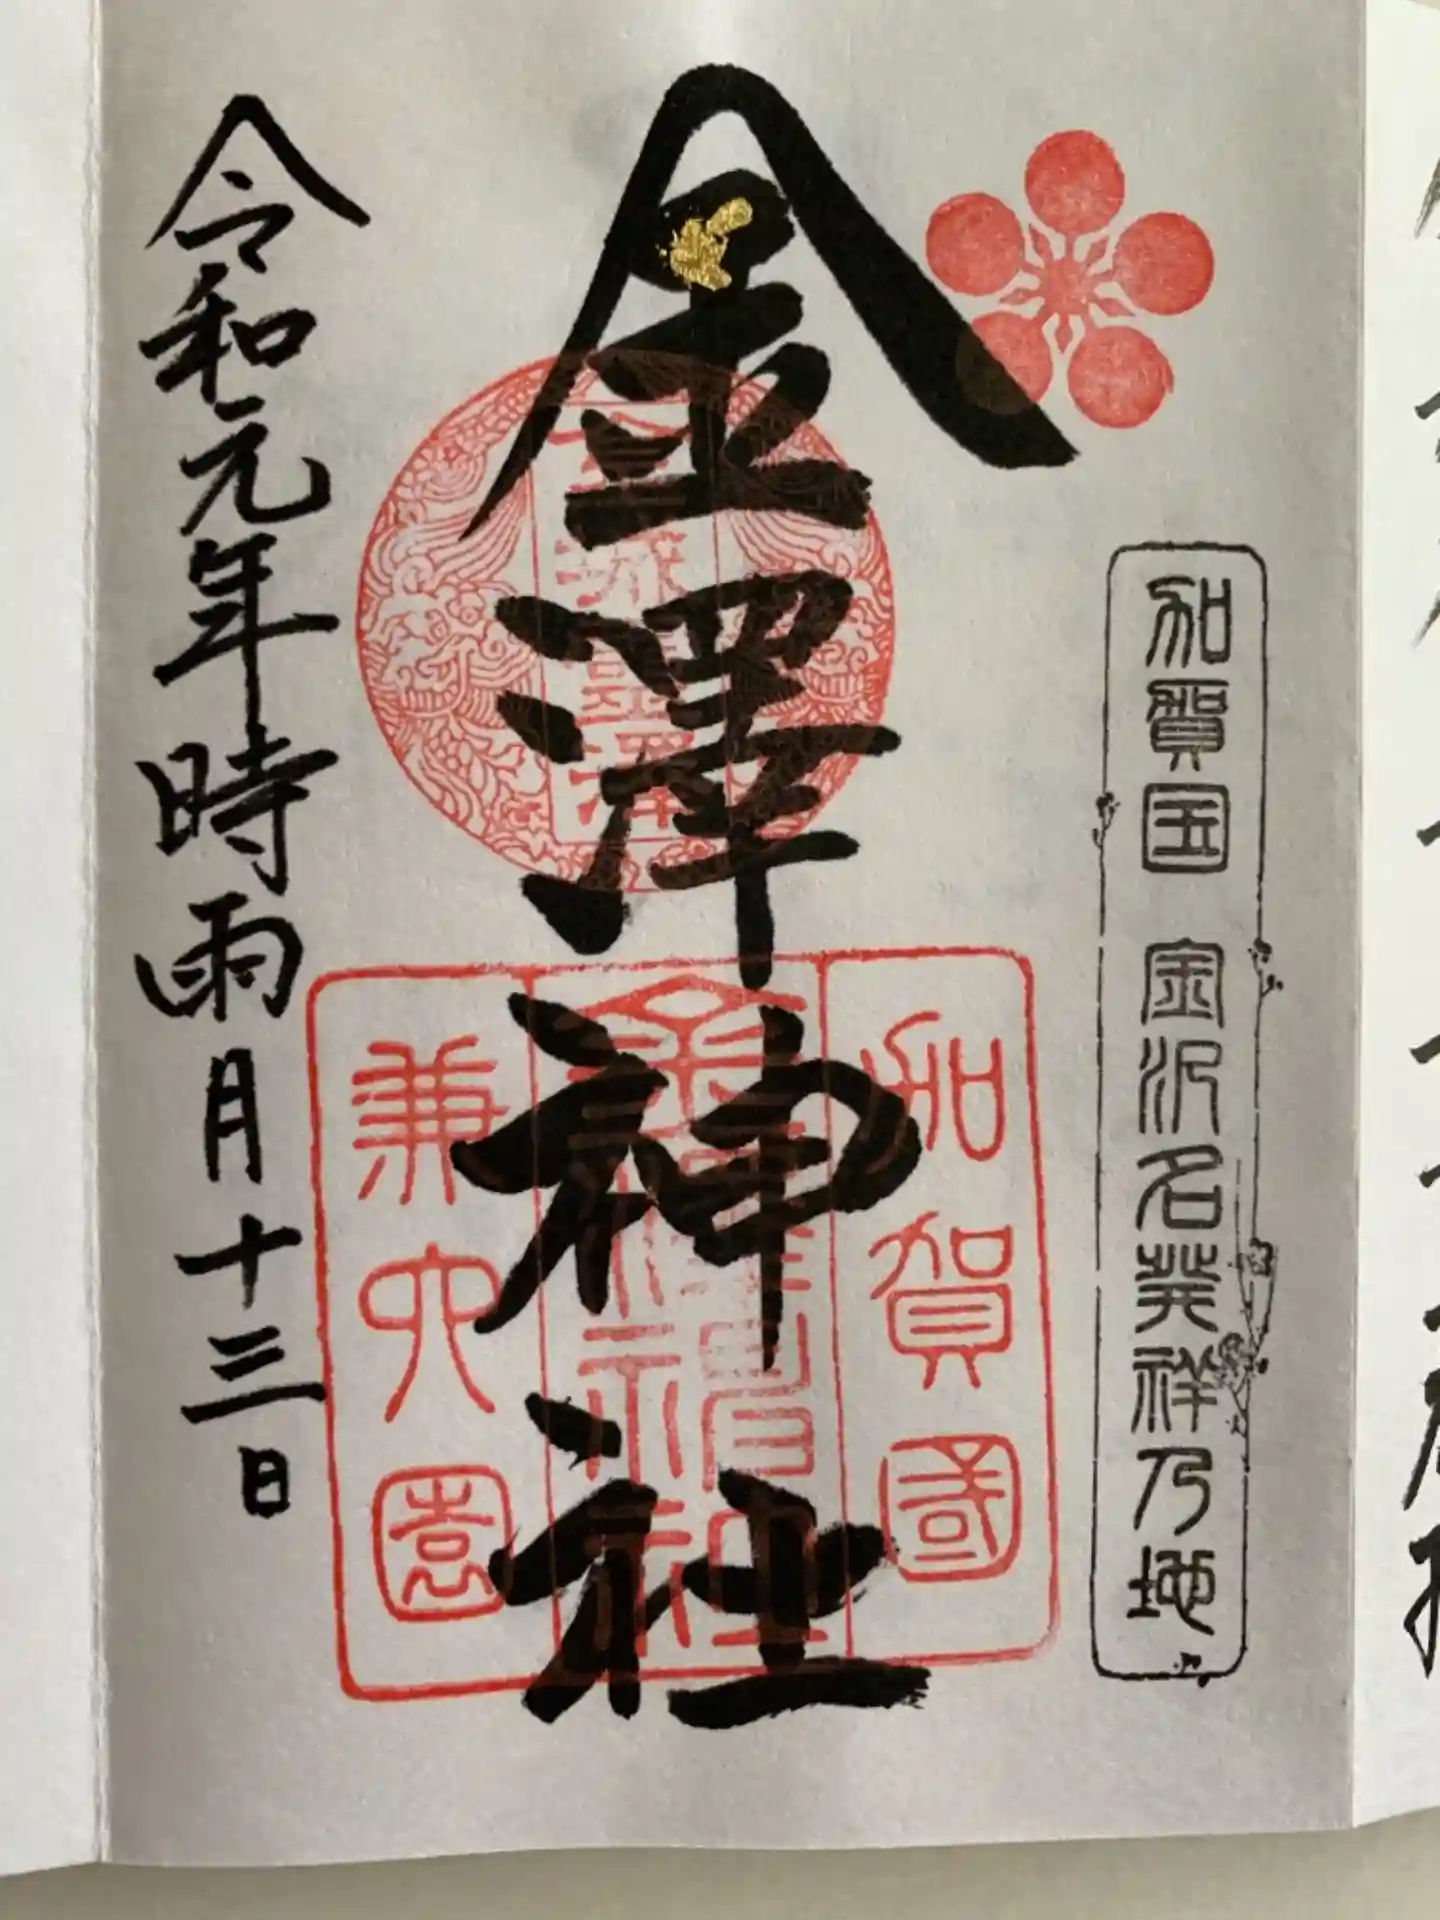 加賀国 金沢名発祥乃地
金澤神社
加賀國
兼六園
令和元年時雨月十三日